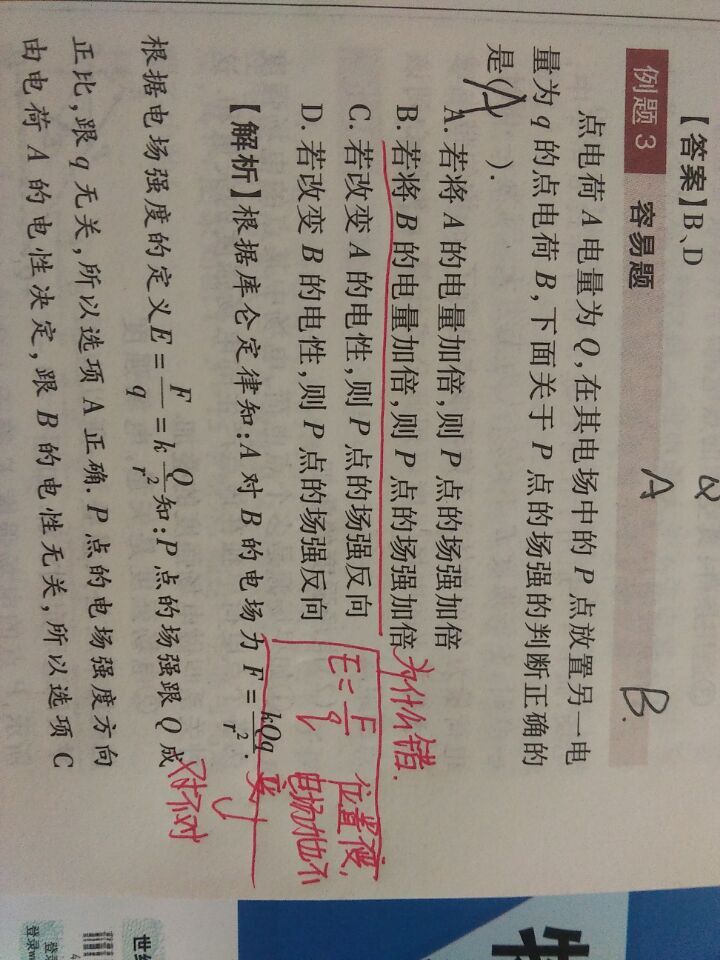 【答案】B、D
Q
例题3 容易题
A
B.
点电荷 A 电量为 Q,在其电场中的 P 点放置另一电
量为 q 的点电荷 B,下面关于 P 点的场强的判断正确的
是(A ).
A. 若将 A 的电量加倍,则 P 点的场强加倍
B. 若将 B 的电量加倍,则 P 点的场强加倍
C. 若改变 A 的电性,则 P 点的场强反向
D. 若改变 B 的电性,则 P 点的场强反向
为什么错.
E=F/q 位置
电场力也不
变
对不对
【解析】根据库仑定律知:A 对 B 的电场力 F=kQq/r².
根据电场强度的定义E=F/q=kQ/r²知:P 点的场强跟 Q 成
正比,跟 q 无关,所以选项 A 正确. P 点的电场强度方向
由电荷 A 的电性决定,跟 B 的电性无关,所以选项 C
世纪
登录
登录w